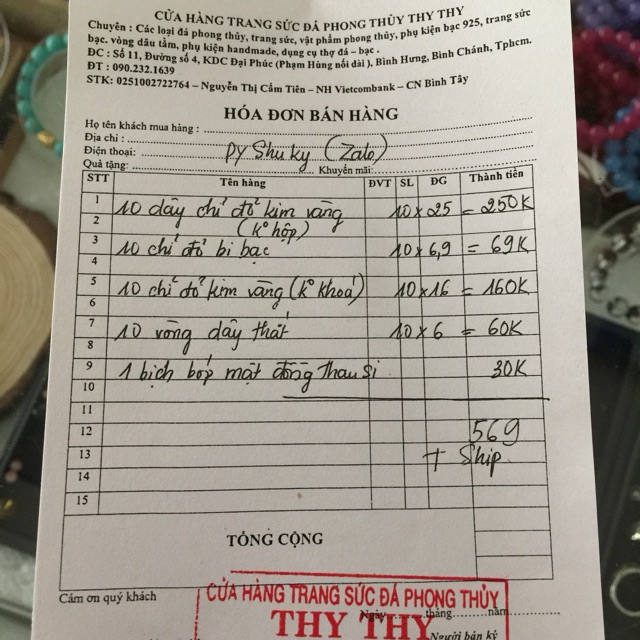 CỬA HÀNG TRANG SỨC ĐÁ PHONG THỦY THY THY
Chuyên : Các loại đá phong thủy, trang sức, vật phẩm phong thủy, phụ kiện bạc 925, trang sức
bạc. vòng dâu tằm, phụ kiện handmade, dụng cụ thợ đá - bạc .
ĐC : Số 11, Đường số 4, KDC Đại Phúc (Phạm Hùng nối dài ), Bình Hưng, Bình Chánh, Tphcm.
ĐT : 090.232.1639
STK: 0251002722764 – Nguyễn Thị Cẩm Tiên – NH Vietcombank – CN Bình Tây
HÓA ĐƠN BÁN HÀNG
Họ tên khách mua hàng :
Địa chỉ :
Điện thoại: Py Shuky (Zalo)
Quà tặng: Khuyến mãi:
STT Tên hàng ĐVT SL ĐG Thành tiền
1 10 dây chỉ đỏ kim vàng 10 x 25 = 250K
2 (k° hộp)
3 10 chỉ đỏ bi bạc 10 x 6,9 = 69K
4
5 10 chỉ đỏ kim vàng (k° khoá) 10 x 16 = 160K
6
7 10 vòng dây thắt 10 x 6 = 60K
8
9 1 bịch bóp mặt đồng thau si 30K
10
11
12 569
13 + Ship
14
15
TỔNG CỘNG
Cám ơn quý khách
CỬA HÀNG TRANG SỨC ĐÁ PHONG THỦY
Ngày tháng năm
THY THY
Người bán ký